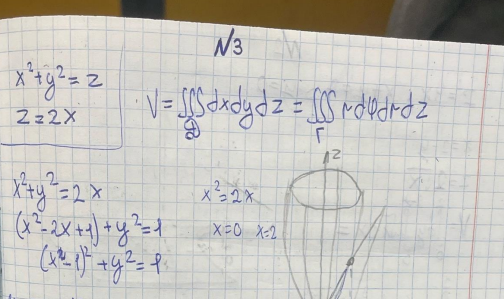 N3
x²+y² = z
z = 2x
V = ∭_D dxdydz = ∭_Γ r dφ dr dz
x²+y² = 2x
(x²-2x+1)+y²=1
(x-1)²+y²=1
x²=2x
x=0 x=2
z